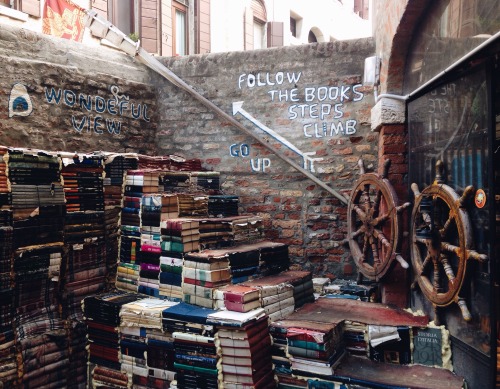 WONDEFUL
VIEW
FOLLOW
THE BOOKS
STEPS
CLIMB
GO
UP